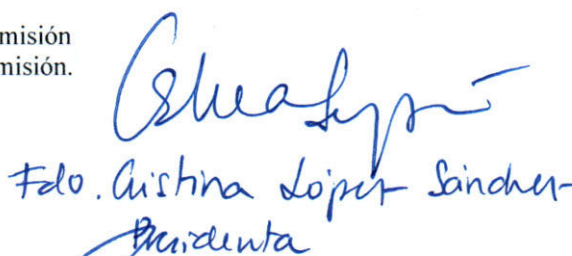 misión
misión.
Fdo. Cristina López Sánchez
Presidenta